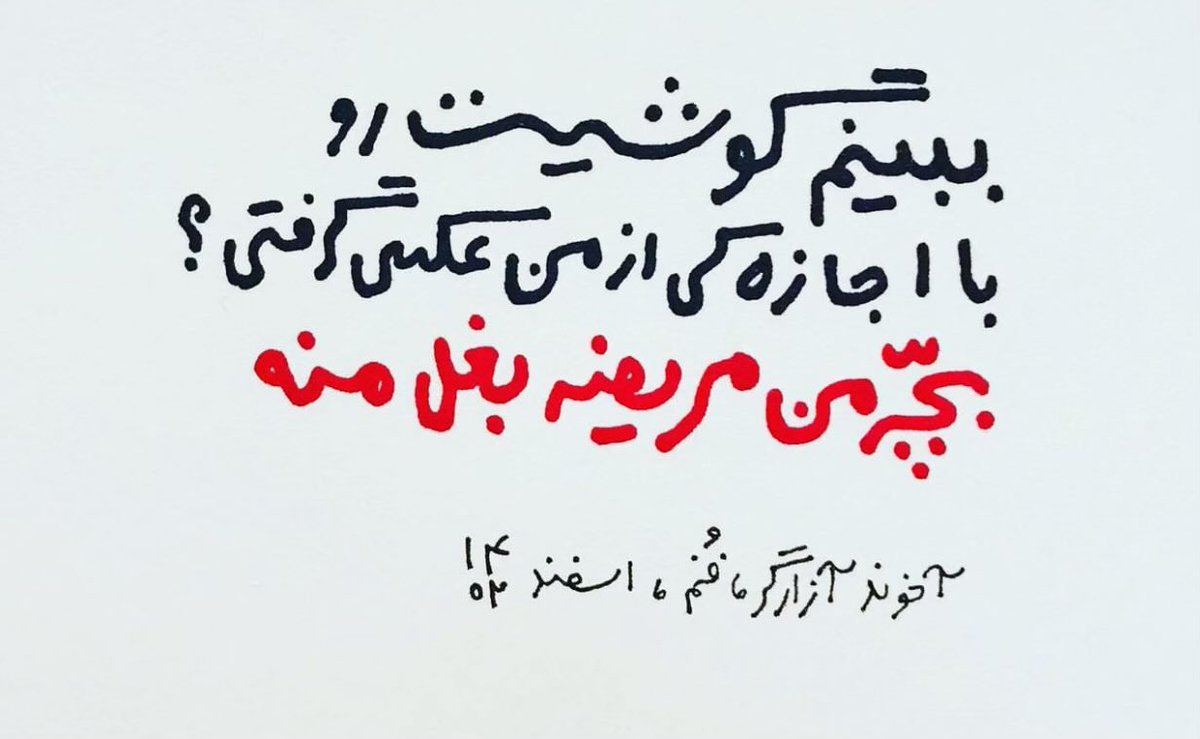 ببینم گوشیت رو
با اجازه کی از من عکس گرفتی؟
بچّه من مریضه بغل منه
آخوند آزارگر، قُم، اسفند ۱۴۰۲